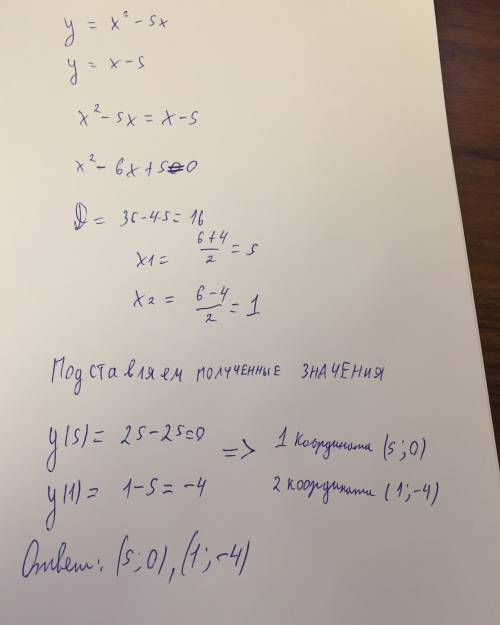 y = x² - 5x
y = x - 5
x² - 5x = x - 5
x² - 6x + 5 = 0
D = 36 - 4·5 = 16
x1 = (6+4)/2 = 5
x2 = (6-4)/2 = 1
Подставляем полученные значения
y(5) = 25 - 25 = 0 => 1 координата (5; 0)
y(1) = 1 - 5 = -4 2 координата (1; -4)
Ответ: (5; 0), (1; -4)